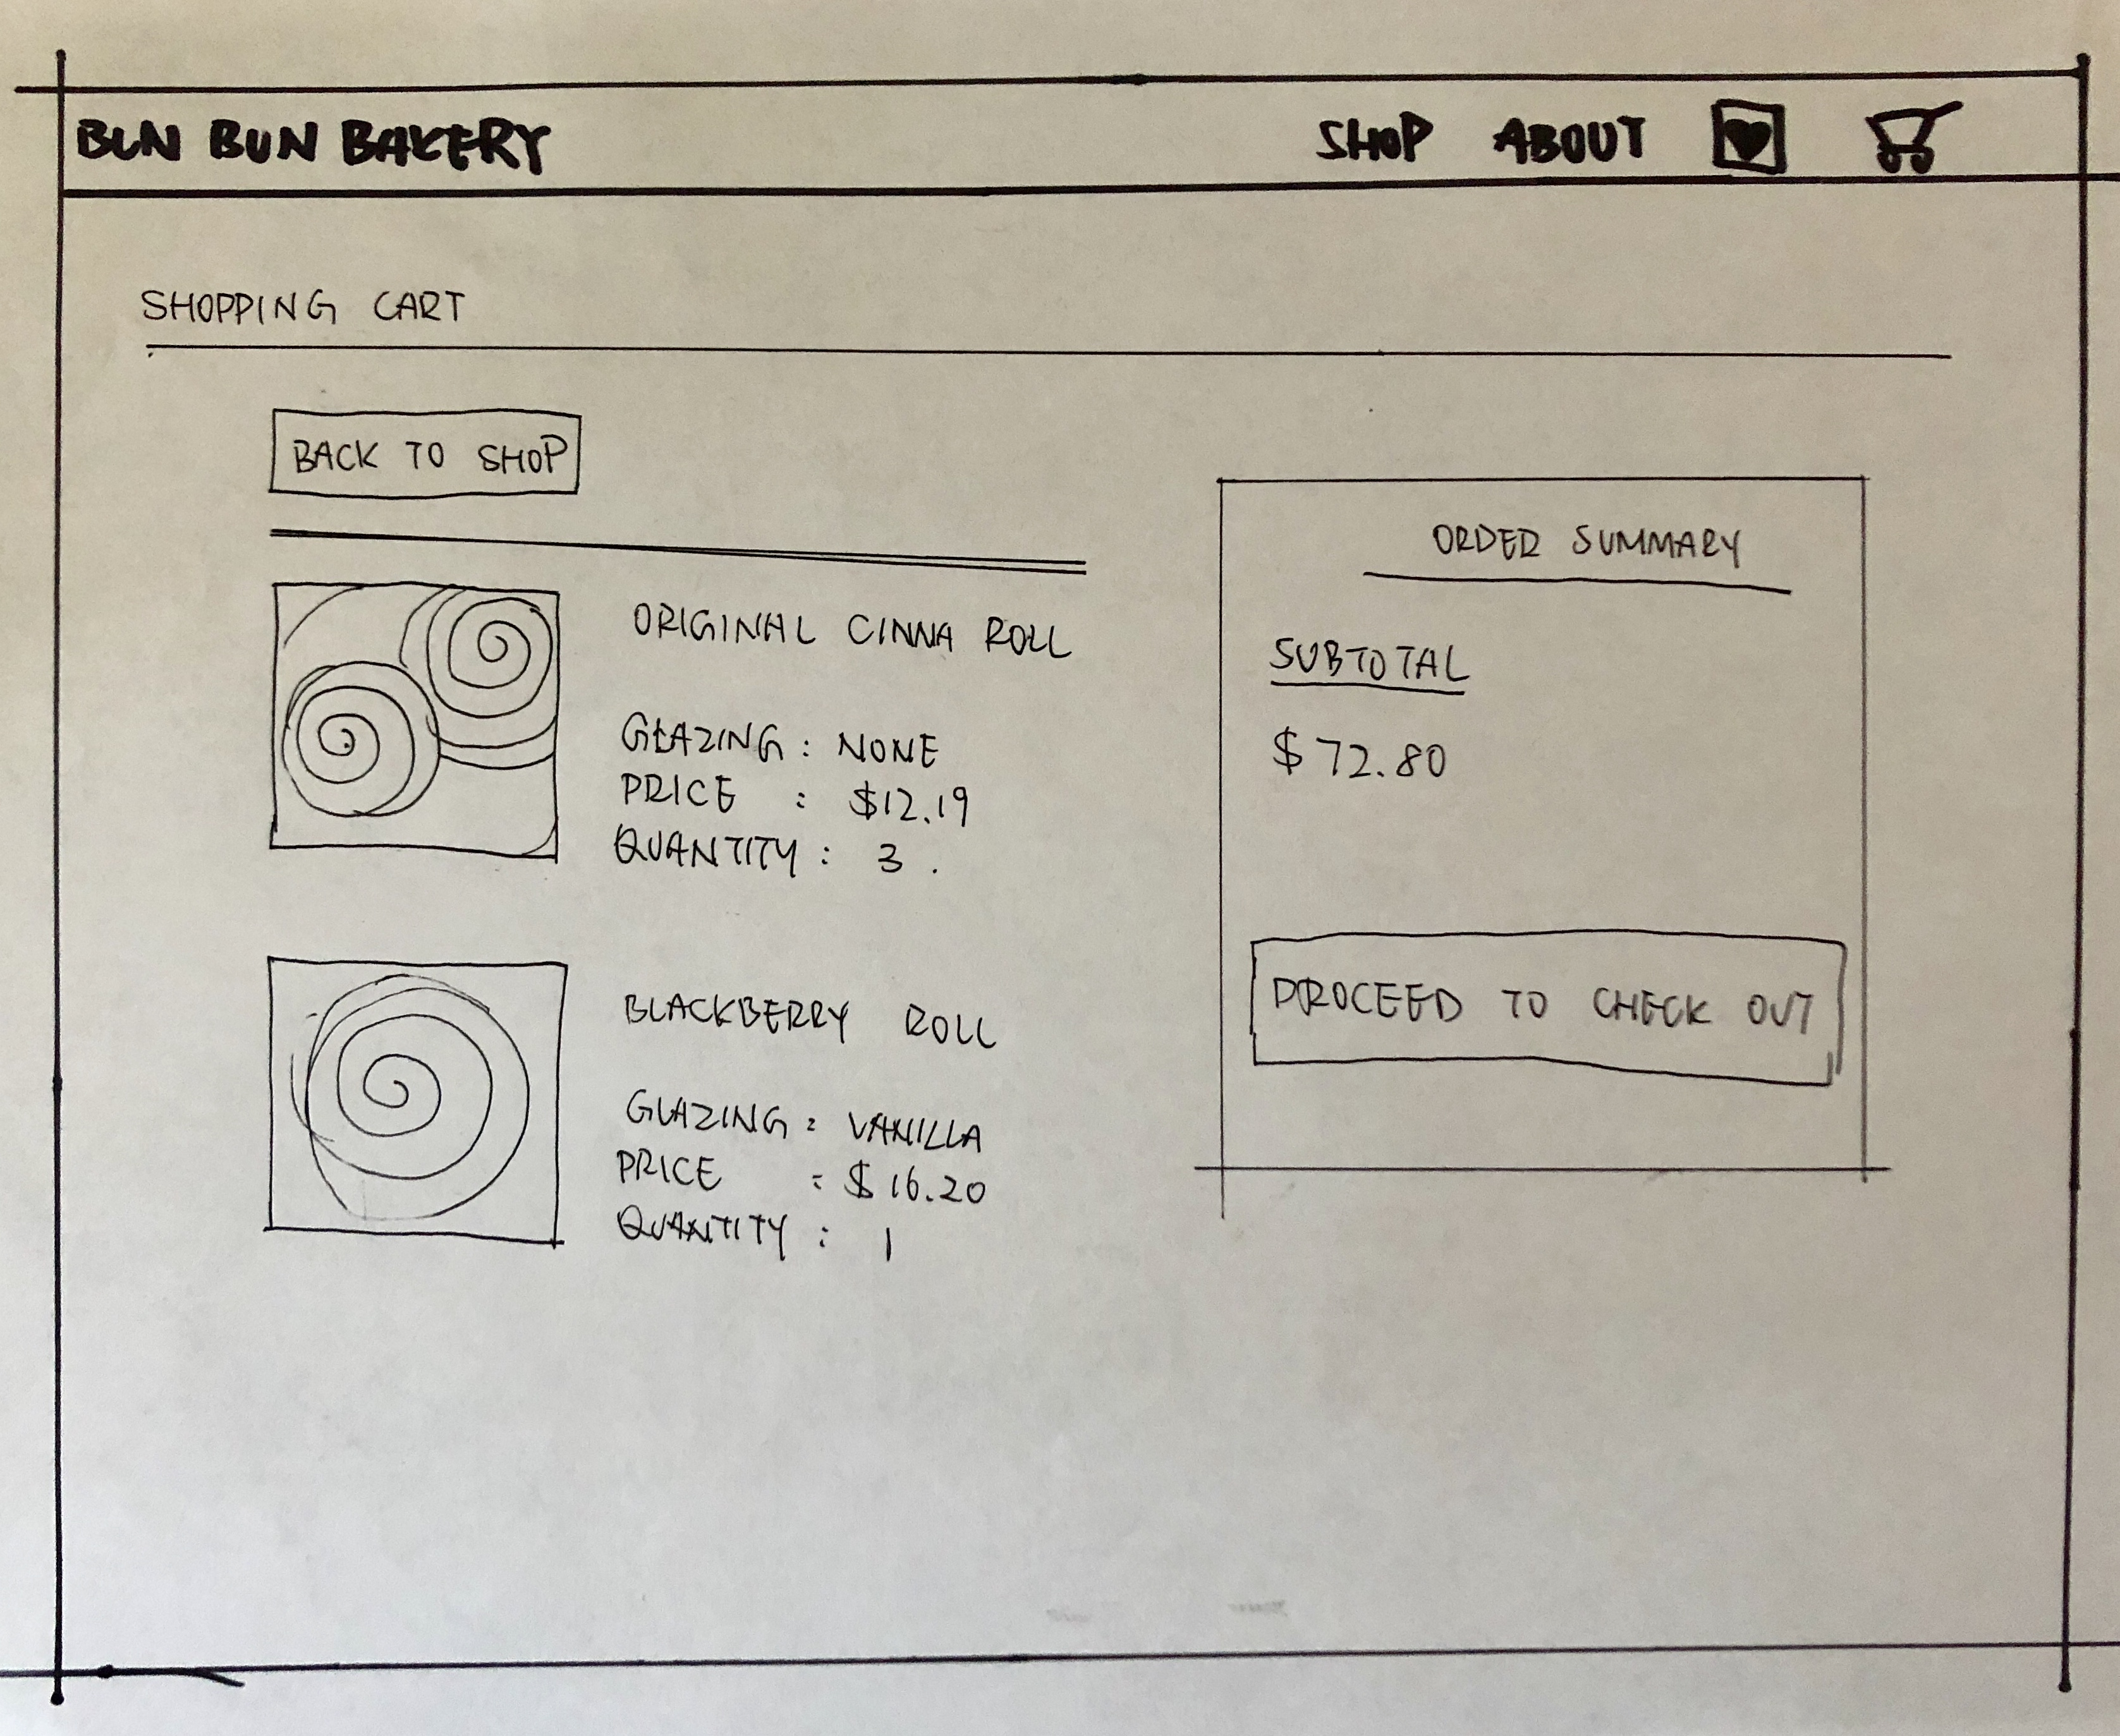 BUN BUN BAKERY SHOP ABOUT
SHOPPING CART
BACK TO SHOP
ORIGINAL CINNA ROLL
GLAZING : NONE
PRICE : $12.19
QUANTITY : 3 .
BLACKBERRY ROLL
GLAZING : VANILLA
PRICE : $16.20
QUANTITY : 1
ORDER SUMMARY
SUBTOTAL
$72.80
PROCEED TO CHECK OUT